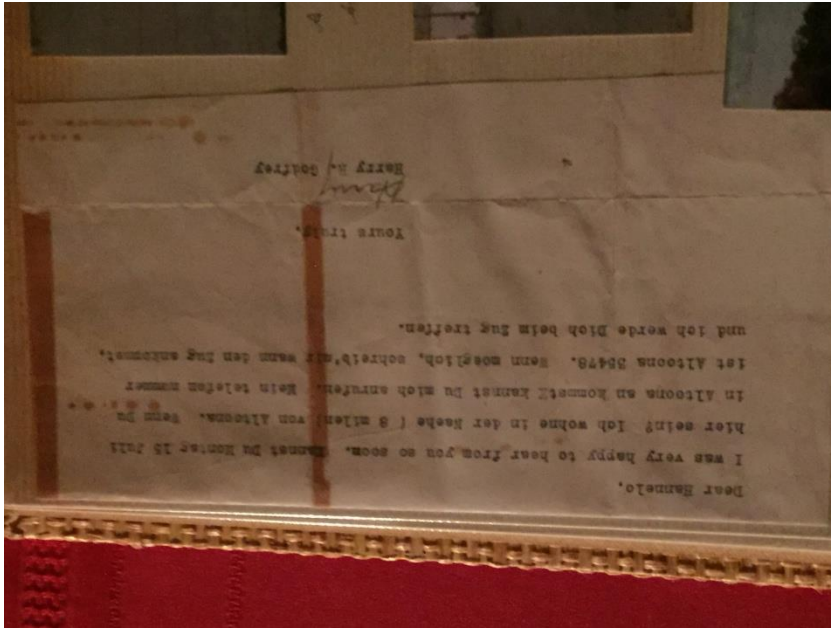 Dear Hannelo,
I was very happy to hear from you so soon. Kannst Du Montag 15 Juli
hier sein? Ich wohne in der Naehe ( 8 milen) von Altoona. Wenn Du
in Altoona an kommst kannst Du mich anrufen. Mein telefon nummer
ist Altoona 35478. Wenn moeglich, schreib'mir wann den Zug ankommt,
und ich werde Dich beim Zug treffen.
Yours truly,
Harry
Harry H. Godfrey